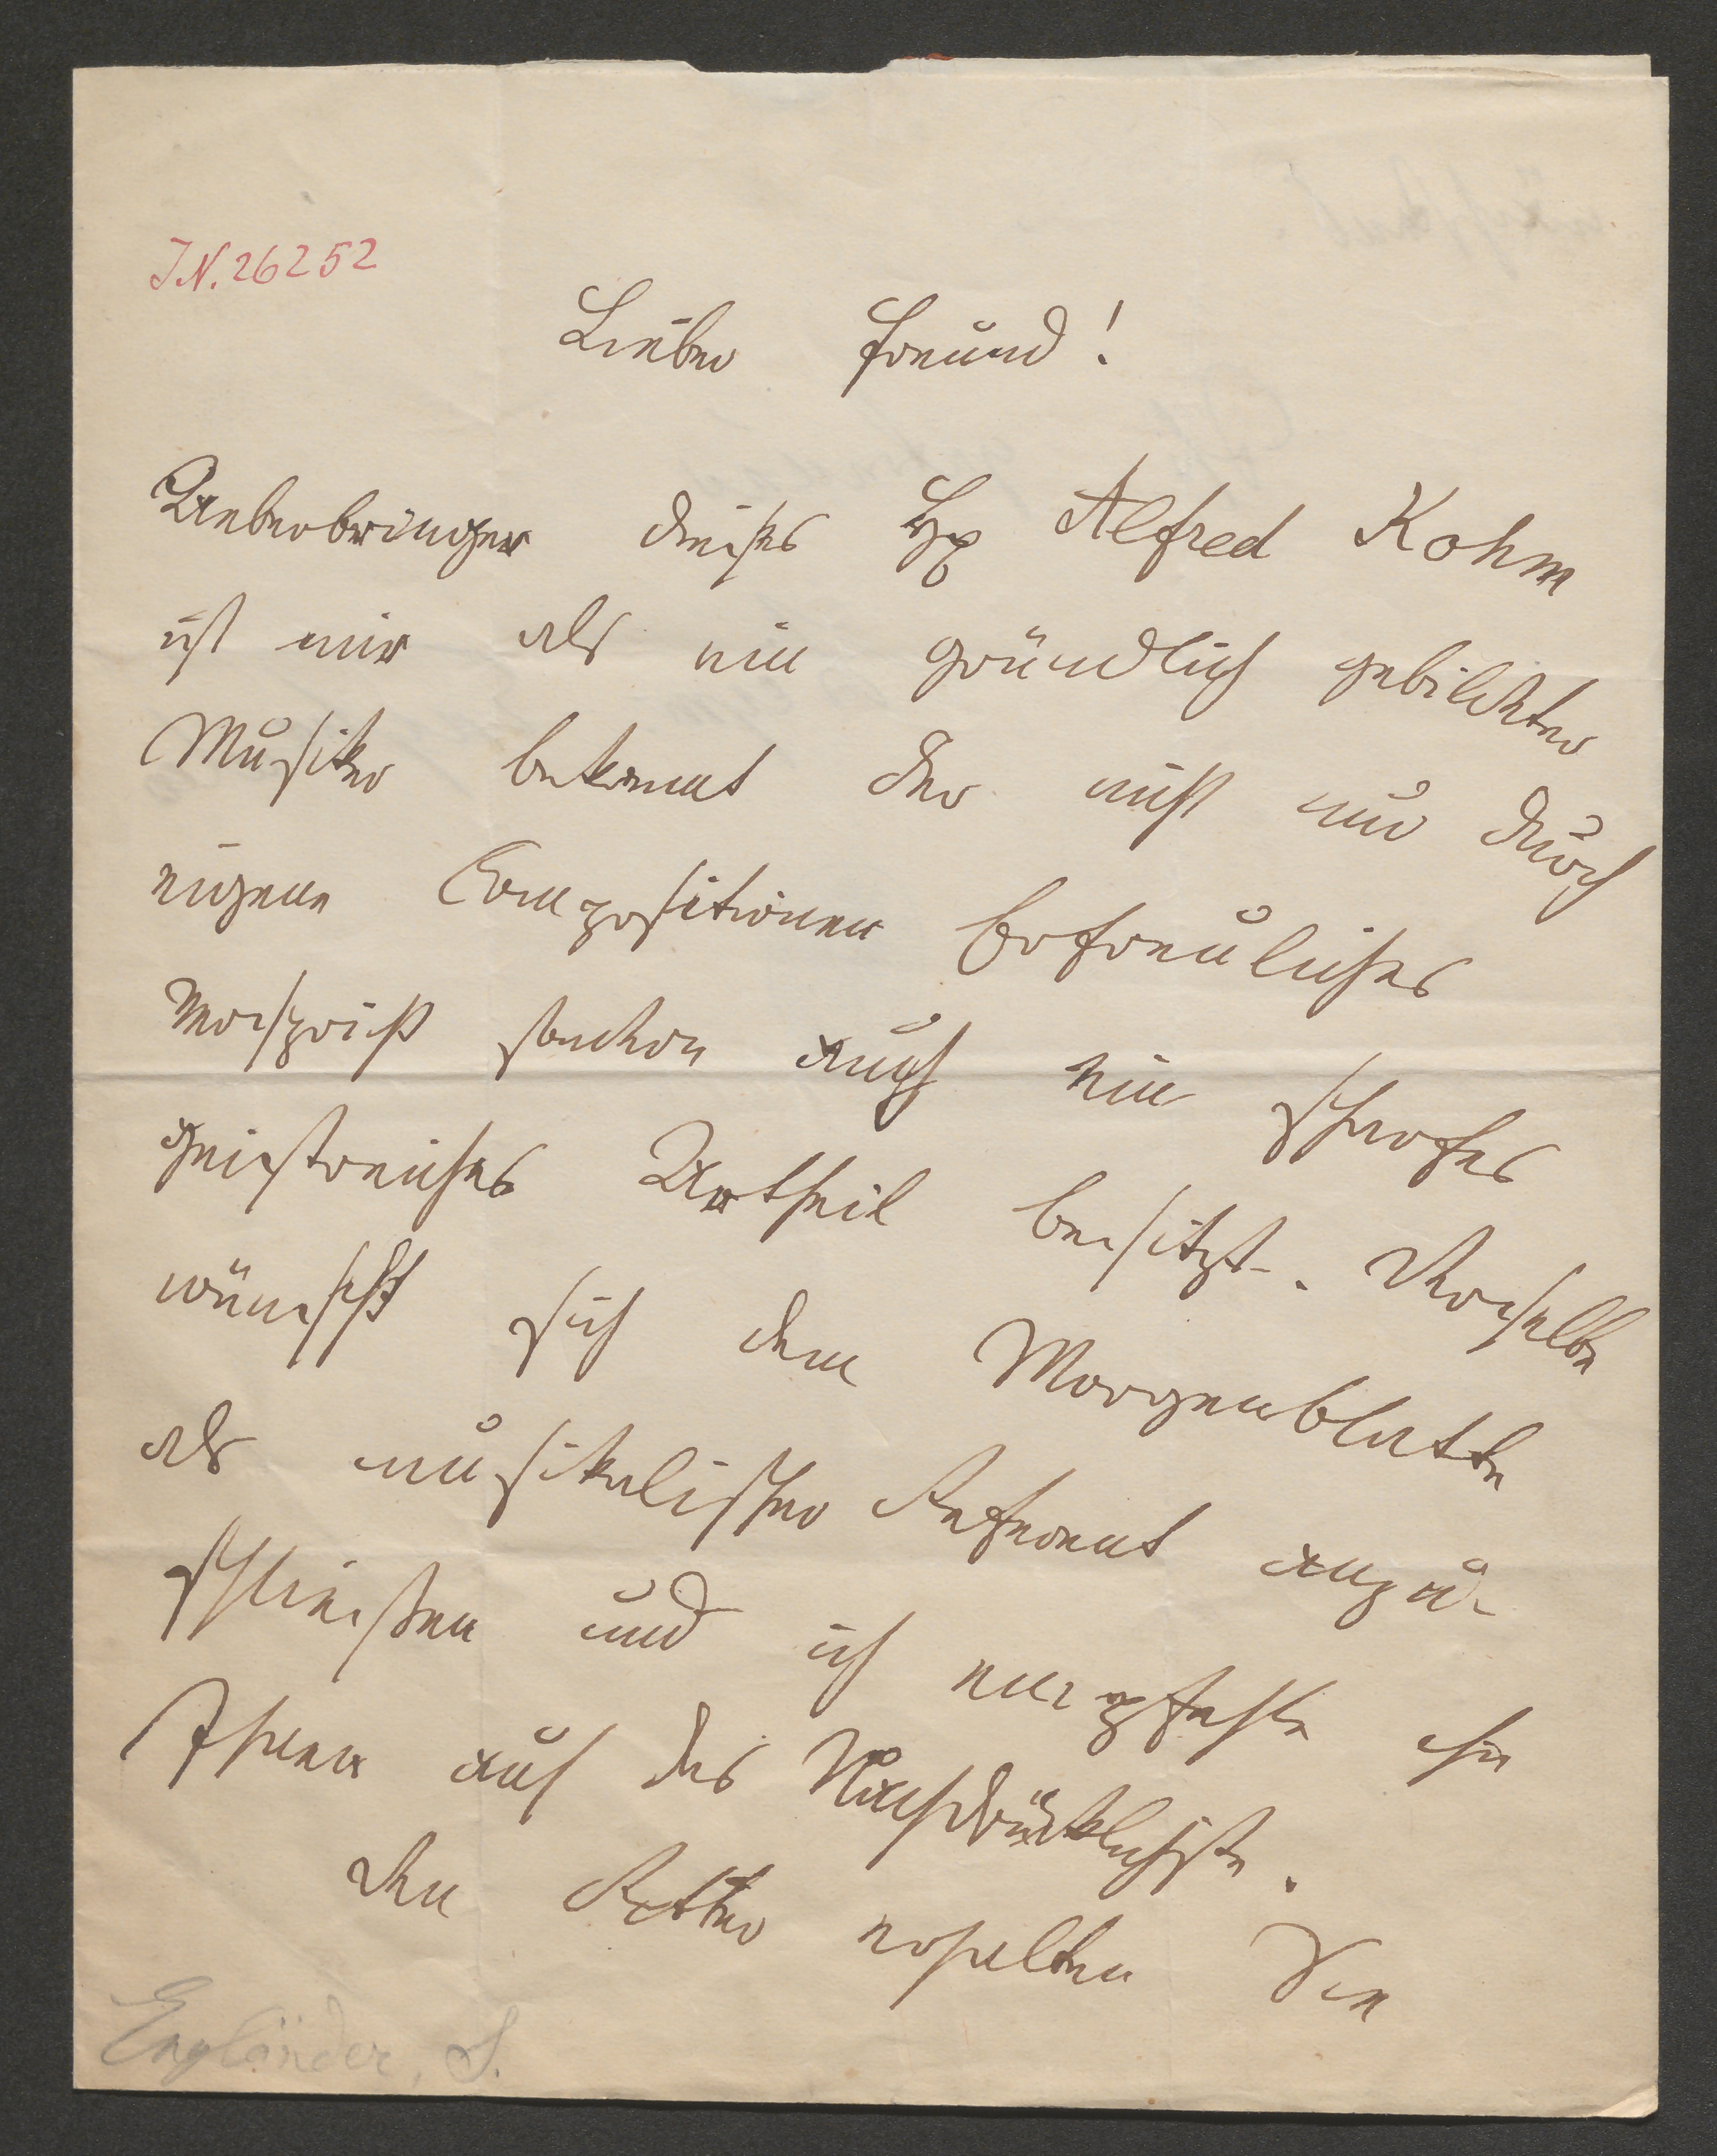 I.N. 26252
Lieber Freund!
Ueberbringer dieses H. Alfred Kohm
ist mir als ein gründlich gebildeter
Musiker bekannt der nicht nur durch
eigene Compositionen Erfreuliches
verspricht sondern auch ein scharfes
geistreiches Urtheil besitzt. Derselbe
wünscht sich dem Morgenblatte
als musikalischer Referent anzu-
schließen und ich empfehle ihn
Ihnen auf das Nachdrücklichste.
Den erhalten Sie
Engländer, S.